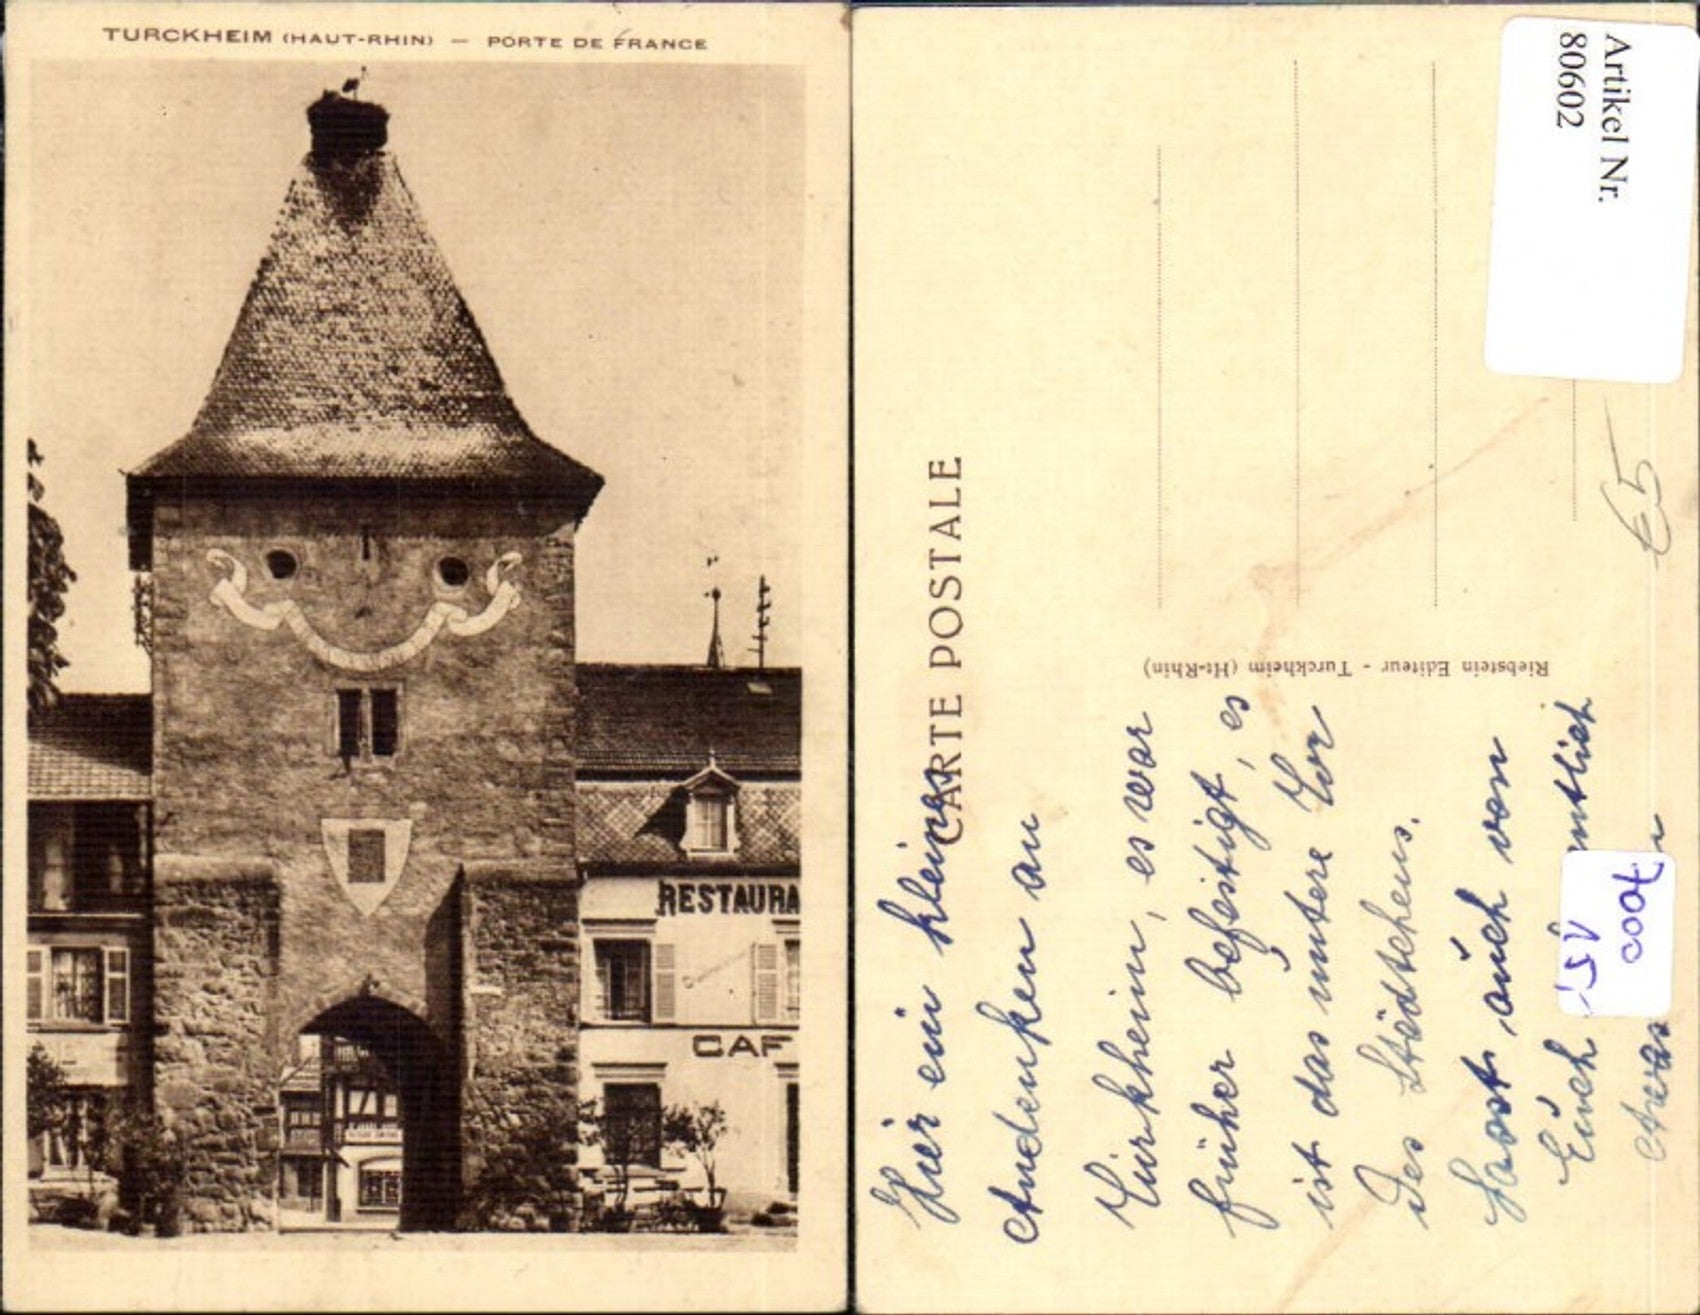 TURCKHEIM (HAUT-RHIN) — PORTE DE FRANCE
RESTAURA
CAF
Artikel Nr.
80602
CARTE POSTALE
Riebstein Editeur - Turckheim (Ht-Rhin)
€5
Hier ein kleines
Andenken an
Türkheim, es war
früher befestigt, es
ist das untere Tor
des Städtchens.
Lasst auch von
Euch
etwas